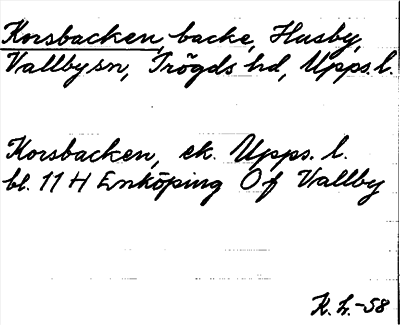 Korsbacken, backe, Husby,
Vallby sn, Trögds hd, Upps. l.
Korsbacken, ek. Upps. l.
bl. 11 H Enköping Of Vallby
K. L. -58